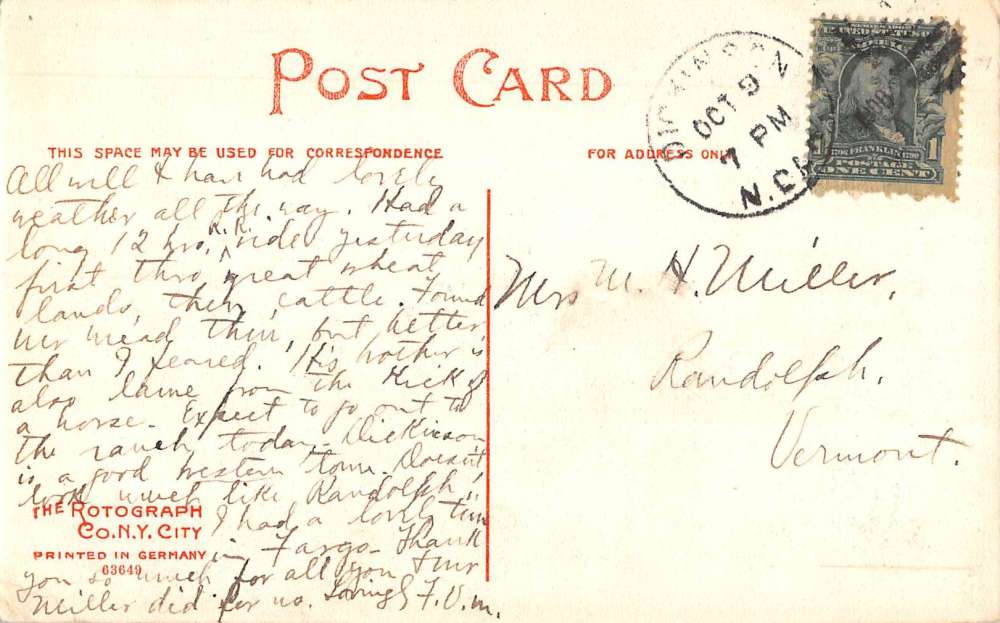 POST CARD
THIS SPACE MAY BE USED FOR CORRESPONDENCE
FOR ADDRESS ONLY
OCT 9
7 PM
N.DAK
1 FRANKLIN 1
POSTAGE
ONE CENT
All well & have had lovely
weather all the way. Had a
long 12 hrs. R.R. ride yesterday
first thro great wheat
lands, then cattle. Found
thin, but better
than I feared. His brother is
also lame from the kick of
a horse. Expect to go out to
the ranch today. Dickinson
is a good western town. Doesn't
look much like Randolph.
I had a lovely time
in Fargo. Thank
you so much for all you &
Miller did for us. Lovingly F.V.M.
Mrs M. H. Miller,
Randolph,
Vermont.
THE ROTOGRAPH
CO. N.Y. CITY
PRINTED IN GERMANY
63649